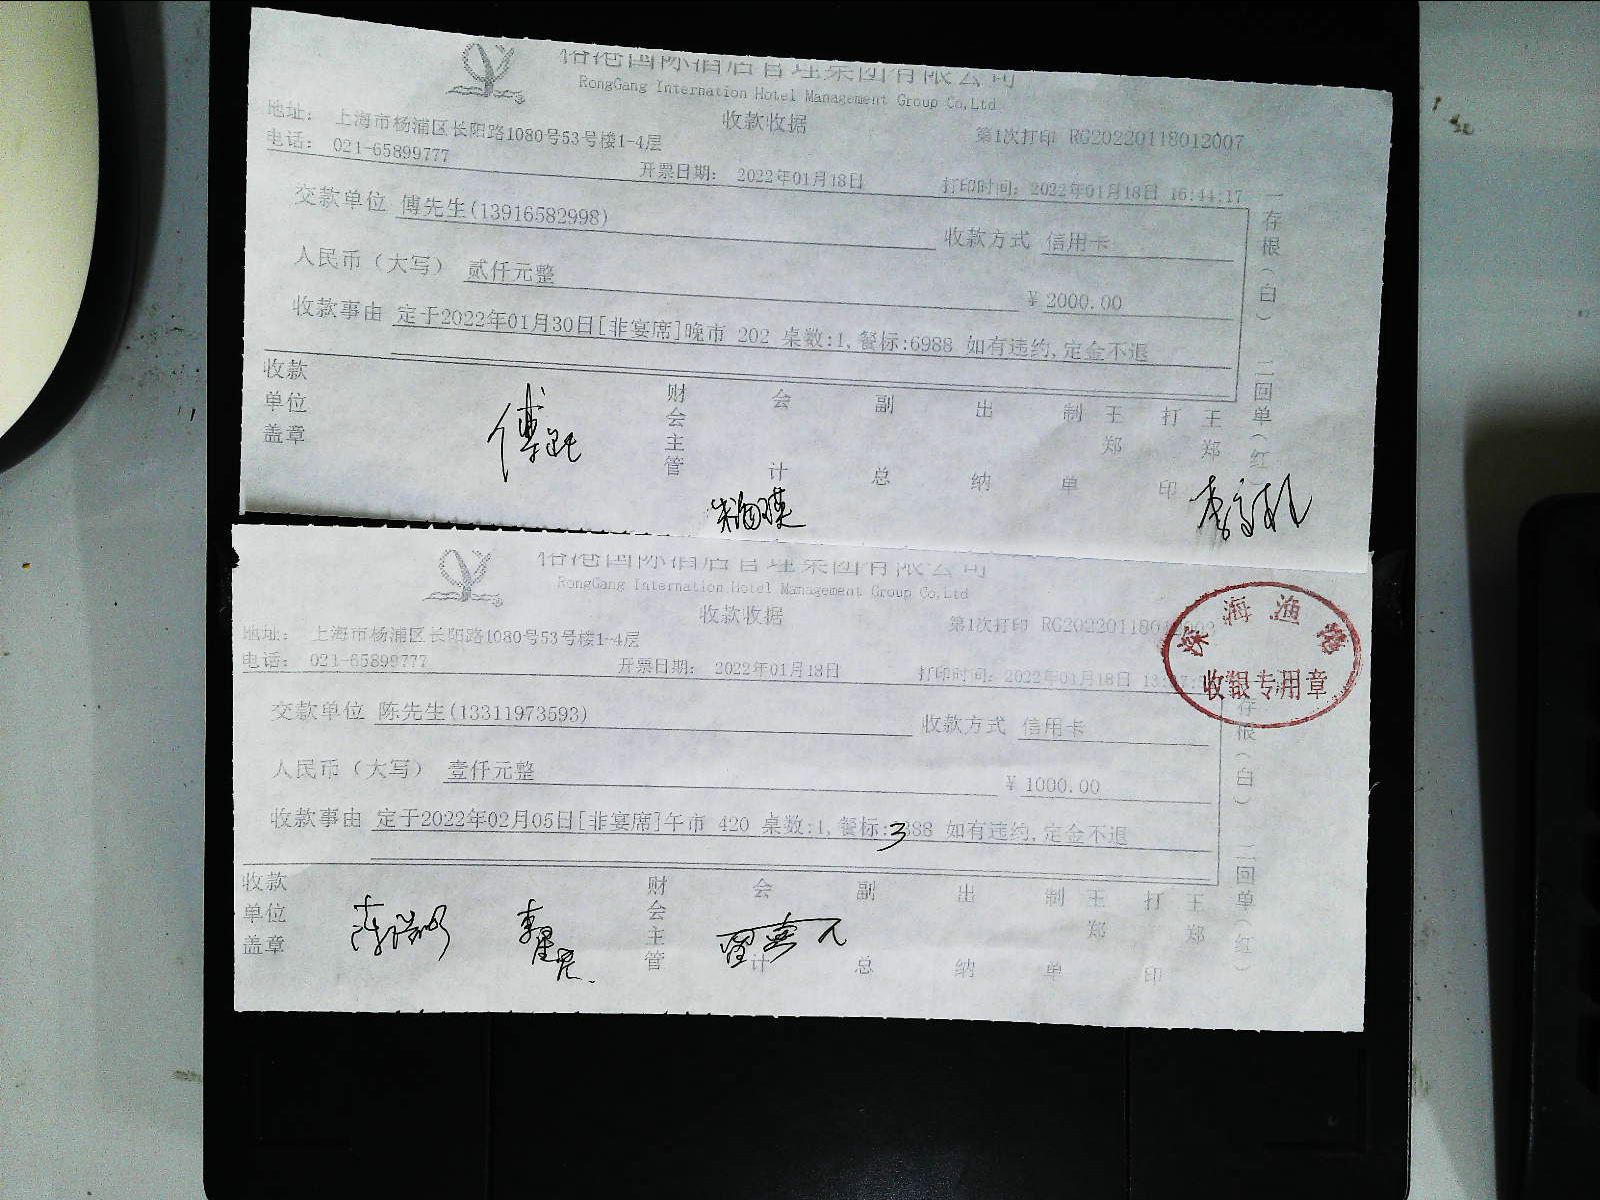 国际酒店管理集团有限公司
RongGang Internation Hotel Management Group Co,Ltd
收款收据
地址： 上海市杨浦区长阳路1080号53号楼1-4层
第1次打印 RG20220118012007
电话： 021-65899777
开票日期： 2022年01月18日
打印时间：2022年01月18日 16:44:17
交款单位 傅先生(13916582998)
收款方式 信用卡
人民币（大写） 贰仟元整
￥2000.00
收款事由 定于2022年01月30日[非宴席]晚市 202 桌数:1,餐标:6988 如有违约,定金不退
一存根（白） 二回单（红）
收款单位盖章
财会主管
会计
副总
出纳
制单 王郑
打印 王郑
国际酒店管理集团有限公司
RongGang Internation Hotel Management Group Co,Ltd
收款收据
地址： 上海市杨浦区长阳路1080号53号楼1-4层
第1次打印
电话： 021-65899777
开票日期： 2022年01月18日
打印时间：2022年01月18日
深海渔港
收银专用章
交款单位 陈先生(13311973593)
收款方式 信用卡
人民币（大写） 壹仟元整
￥1000.00
收款事由 定于2022年02月05日[非宴席]午市 420 桌数:1,餐标:3388 如有违约,定金不退
存根（白） 二回单（红）
收款单位盖章
财会主管
会计
副总
出纳
制单 王郑
打印 王郑